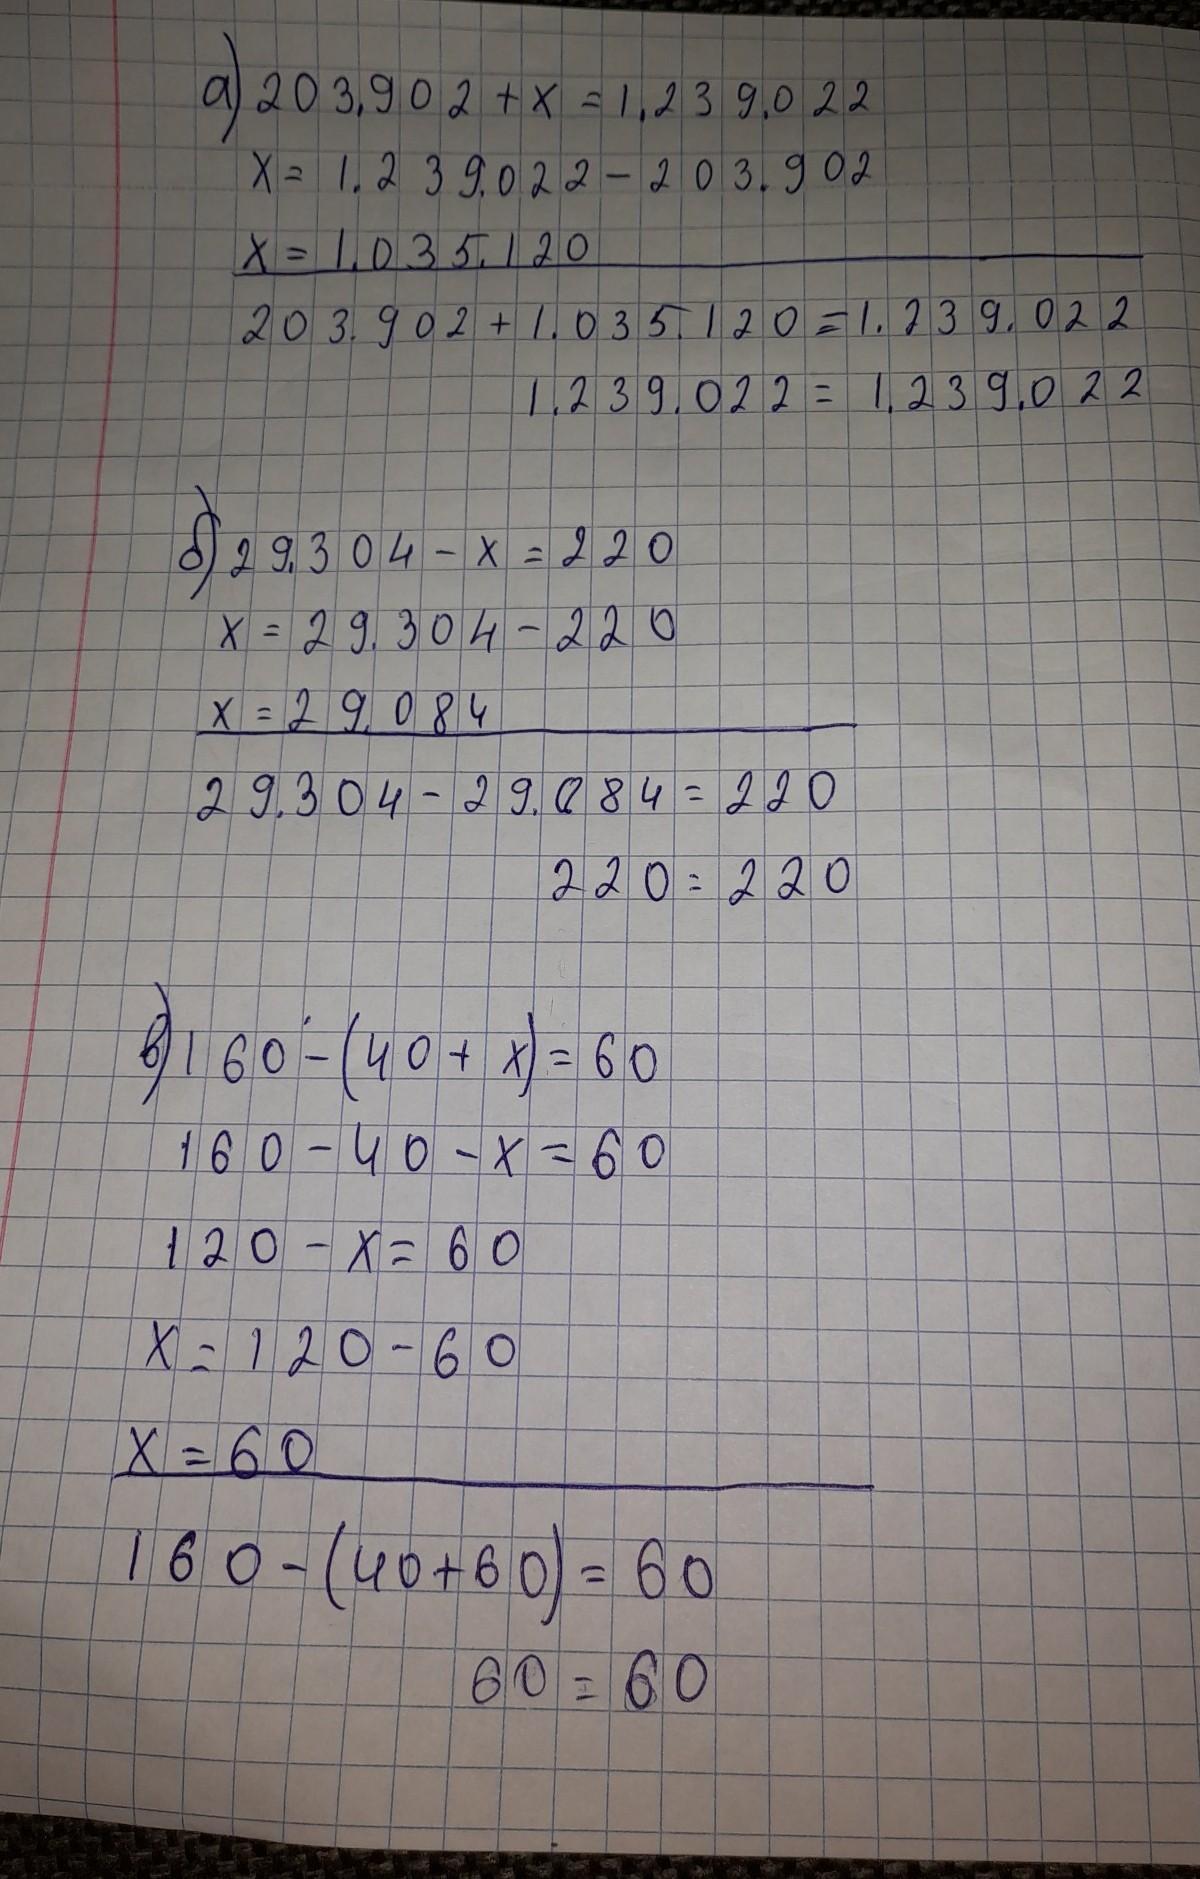 а) 203.902 + x = 1.239.022
x = 1.239.022 - 203.902
x = 1.035.120
203.902 + 1.035.120 = 1.239.022
1.239.022 = 1.239.022
б) 29.304 - x = 220
x = 29.304 - 220
x = 29.084
29.304 - 29.084 = 220
220 = 220
в) 160 - (40 + x) = 60
160 - 40 - x = 60
120 - x = 60
x = 120 - 60
x = 60
160 - (40 + 60) = 60
60 = 60